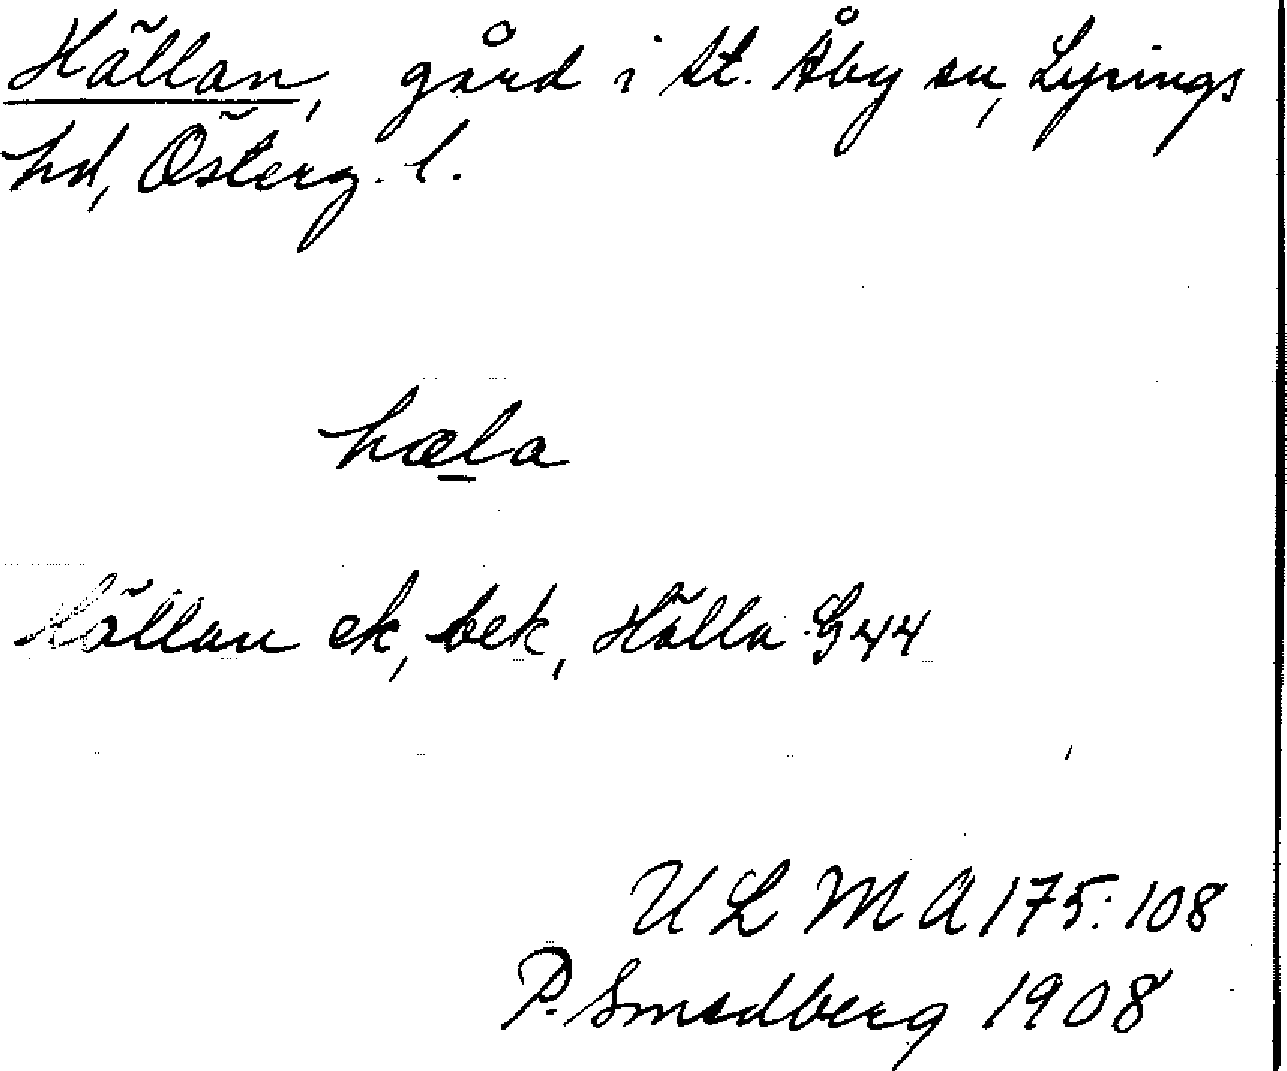 Hällan, gård i St. Åby sn, Lysings
hd, Österg. l.
hæla
Hällan ek, bek, Hälla G44
U L M A 175:108
P. Smedberg 1908